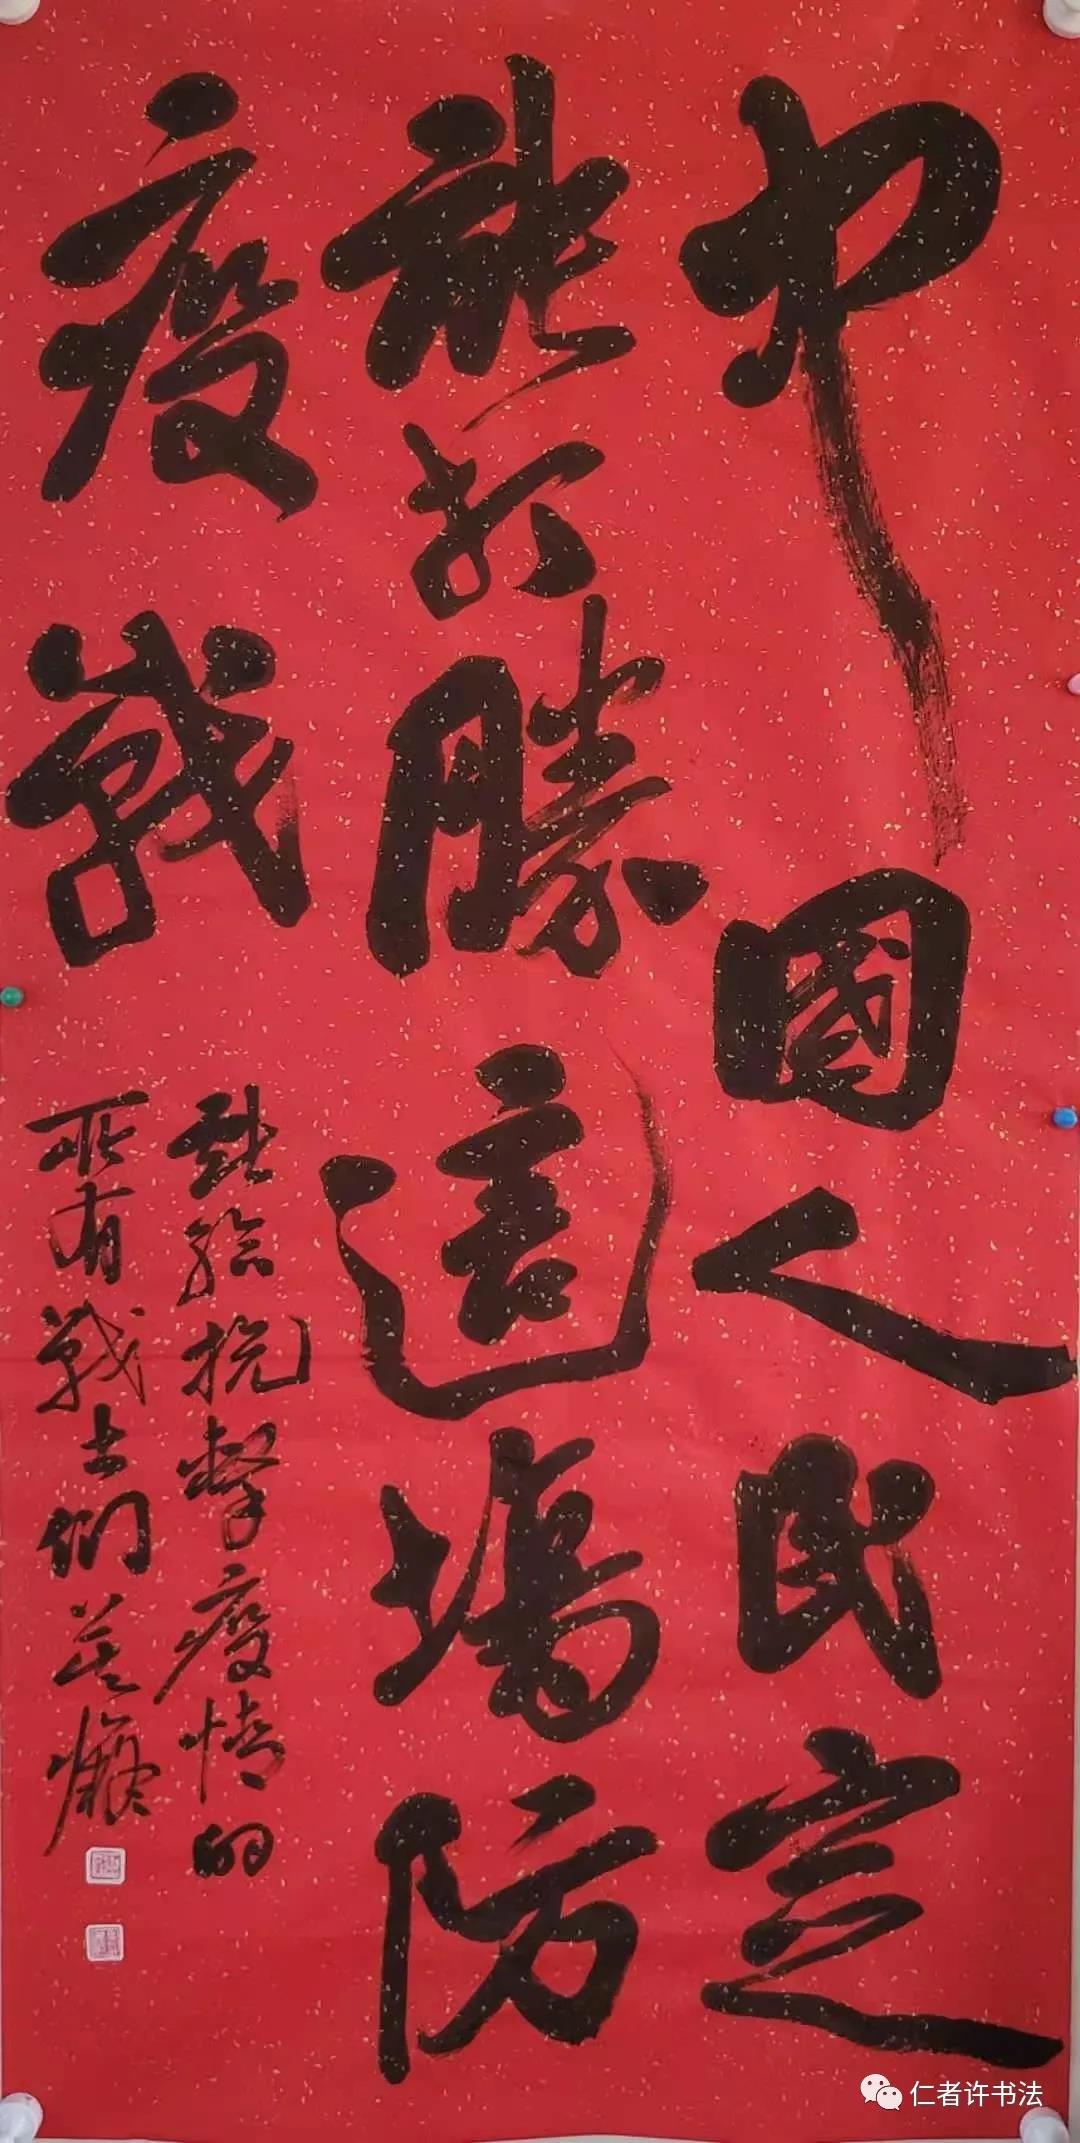 中國人民定
能打勝這場防
疫戰
献给抗擊疫情的
所有戰士們
仁者许书法